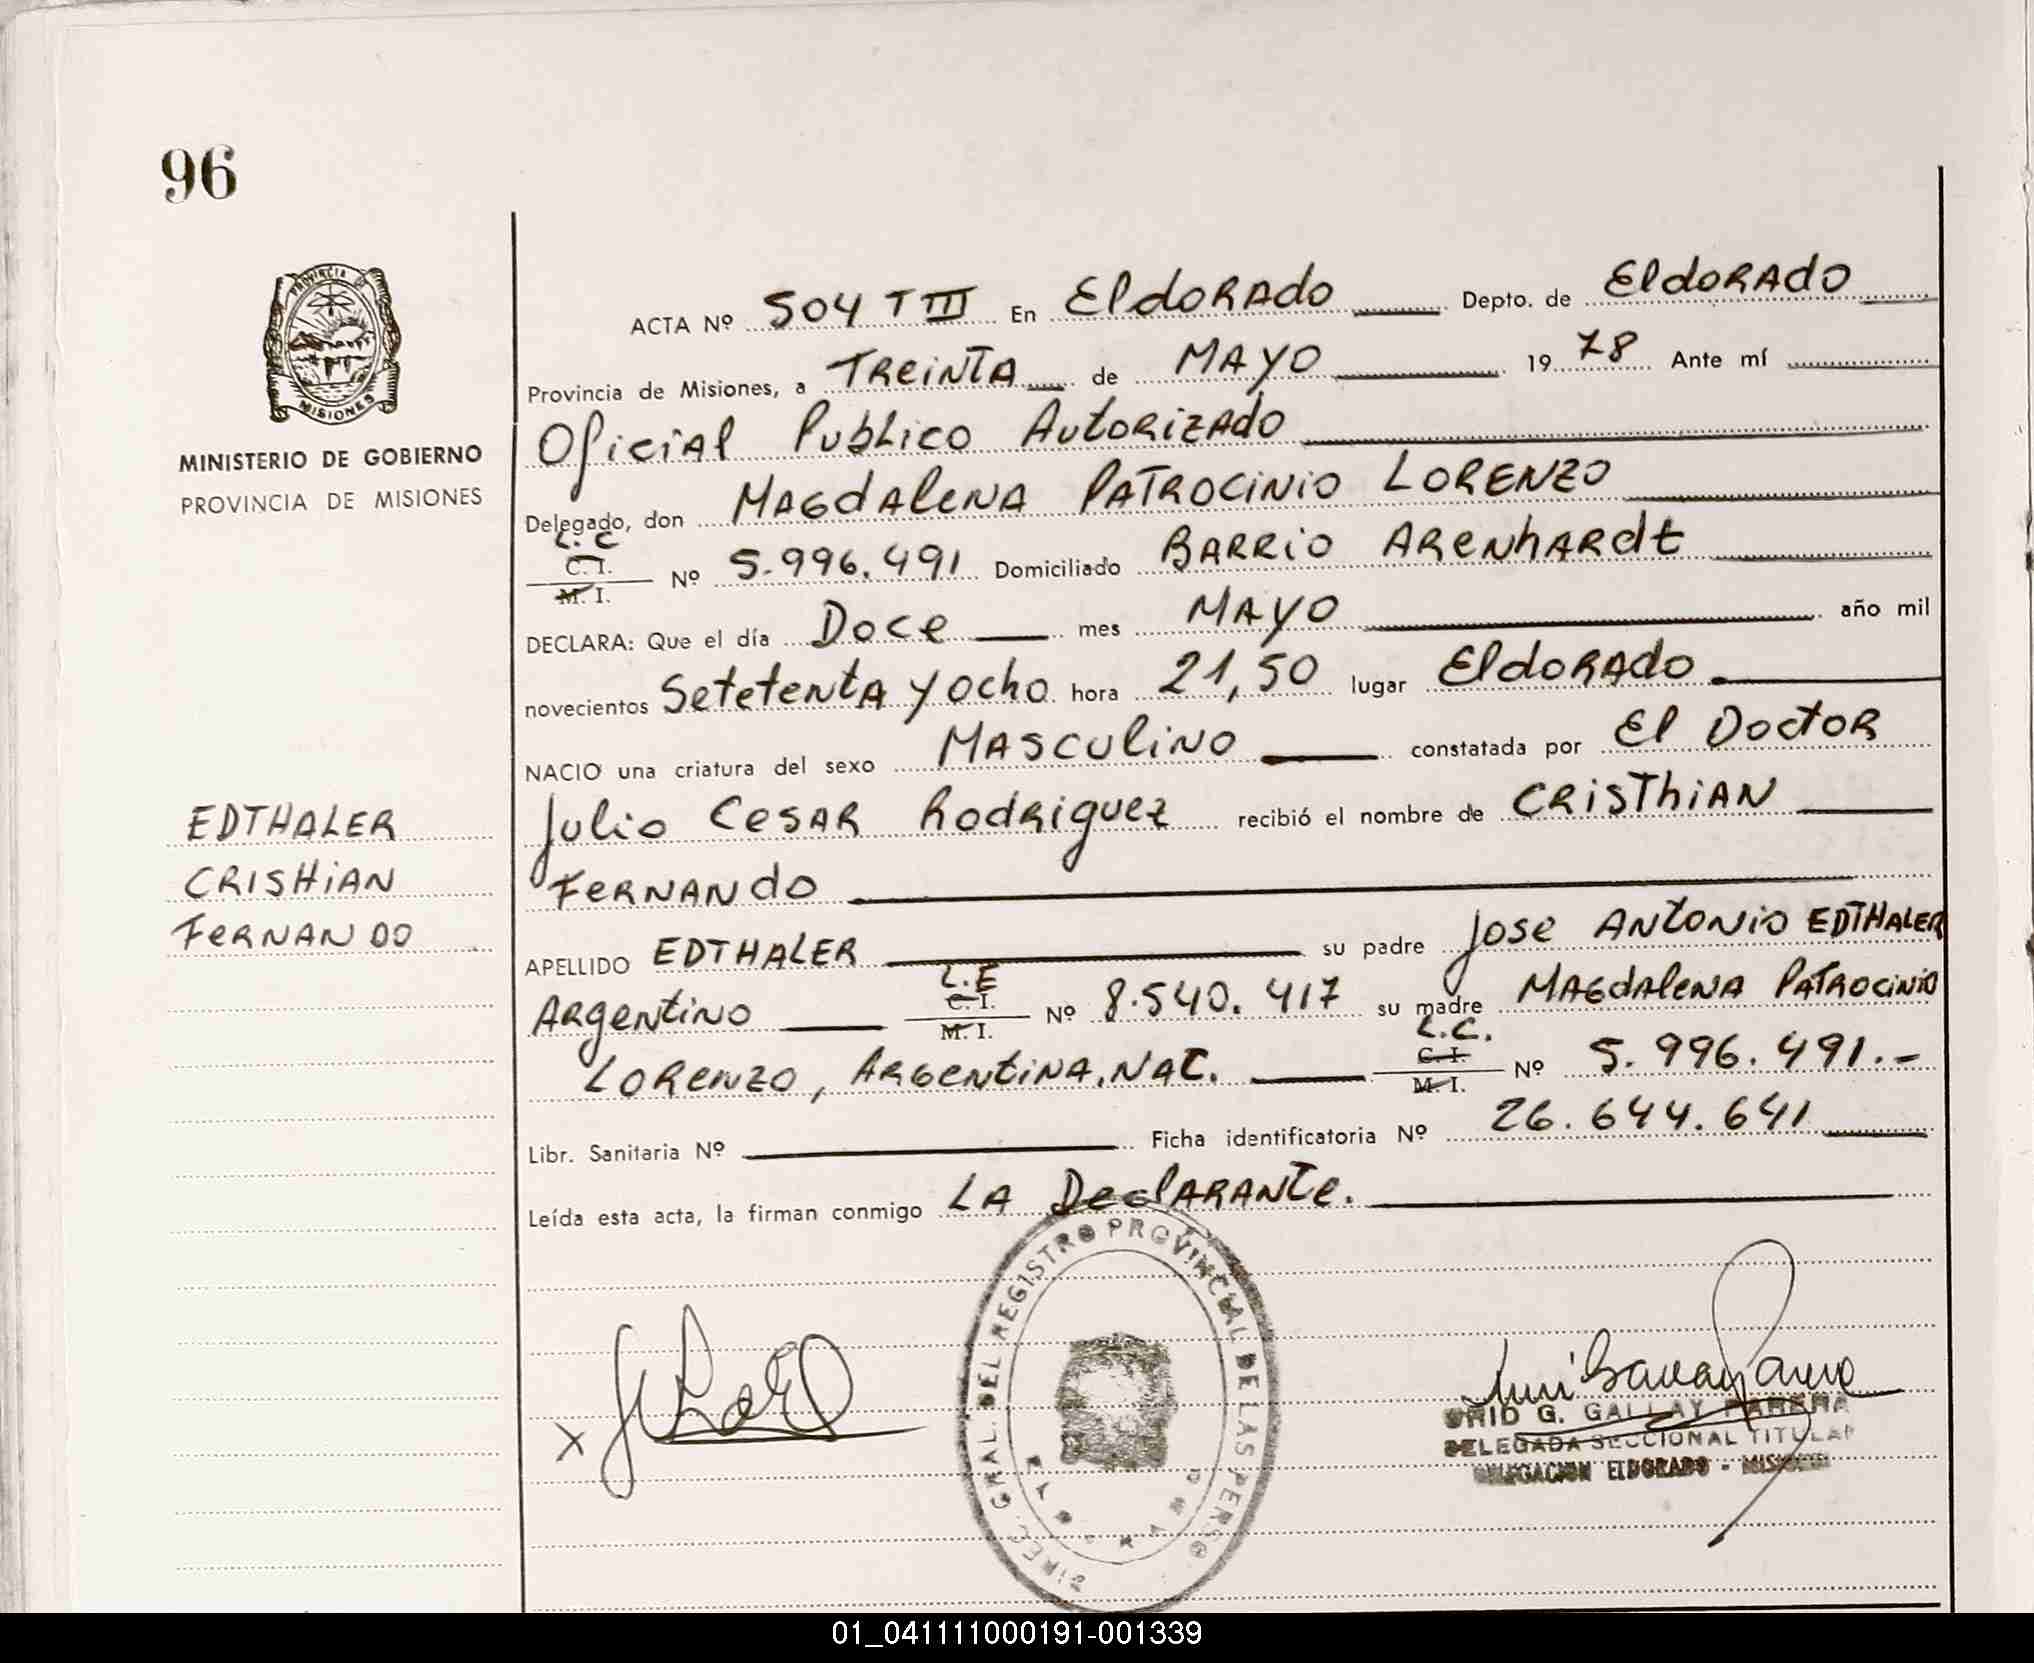 96
PROVINCIA DE
MISIONES
MINISTERIO DE GOBIERNO
PROVINCIA DE MISIONES
EDTHALER
CRISHiAN
FERNANDO
ACTA Nº 504 T III En Eldorado Depto. de Eldorado
Provincia de Misiones, a Treinta de Mayo 1978 Ante mí
Oficial Publico Autorizado
Delegado, don Magdalena Patrocinio Lorenzo
L. C
C. I.
M. I. Nº 5.996.491 Domiciliado Barrio Arenhardt
DECLARA: Que el día Doce mes Mayo año mil
novecientos Setetenta y ocho hora 21,50 lugar Eldorado
NACIO una criatura del sexo Masculino constatada por El Doctor
Julio Cesar Rodriguez recibió el nombre de Cristhian
Fernando
APELLIDO EDTHALER su padre Jose Antonio EDTHALER
Argentino L.E C. I. M. I. Nº 8.540.417 su madre Magdalena Patrocinio
Lorenzo, Argentina, Nac. L.C. C. I. M. I. Nº 5.996.491.-
Libr. Sanitaria Nº Ficha identificatoria Nº 26.644.641
Leída esta acta, la firman conmigo La Declarante.
DIREC. GRAL. DEL REGISTRO PROVINCIAL DE LAS PERSO
G. GALLAY PARERA
DELEGADA SECCIONAL TITULAR
DELEGACION ELDORADO - MISIONES
01_041111000191-001339